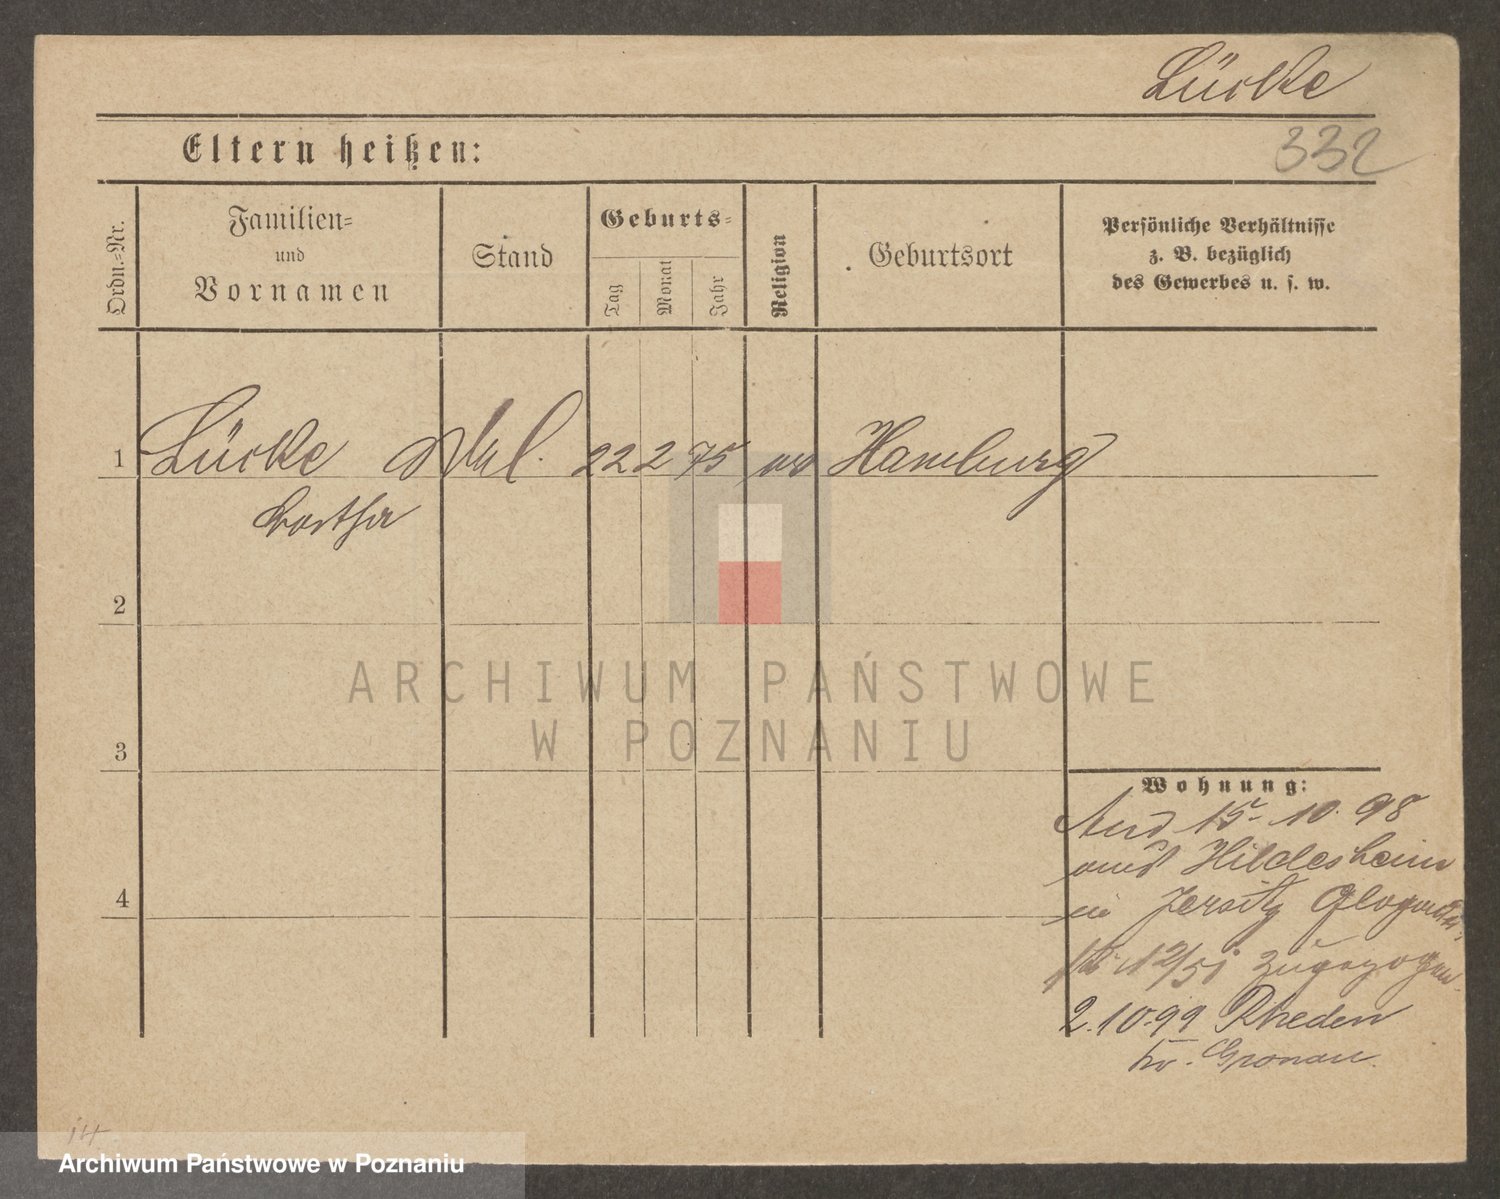 Lücke
332
Eltern heißen:
Ordn.-Nr.
Familien-
und
Vornamen
Stand
Geburts-
Tag
Monat
Jahr
Religion
Geburtsort
Persönliche Verhältnisse
z. B. bezüglich
des Gewerbes u. s. w.
1 Lücke 22 2 75 ev Hamburg
2
ARCHIWUM PAŃSTWOWE
W POZNANIU
3
Wohnung:
15. 10. 98
aus Hildesheim
in Jersitz
12/5 zugezogen
4
2. 10. 99 Rheden
Kr. Gronau
Archiwum Państwowe w Poznaniu